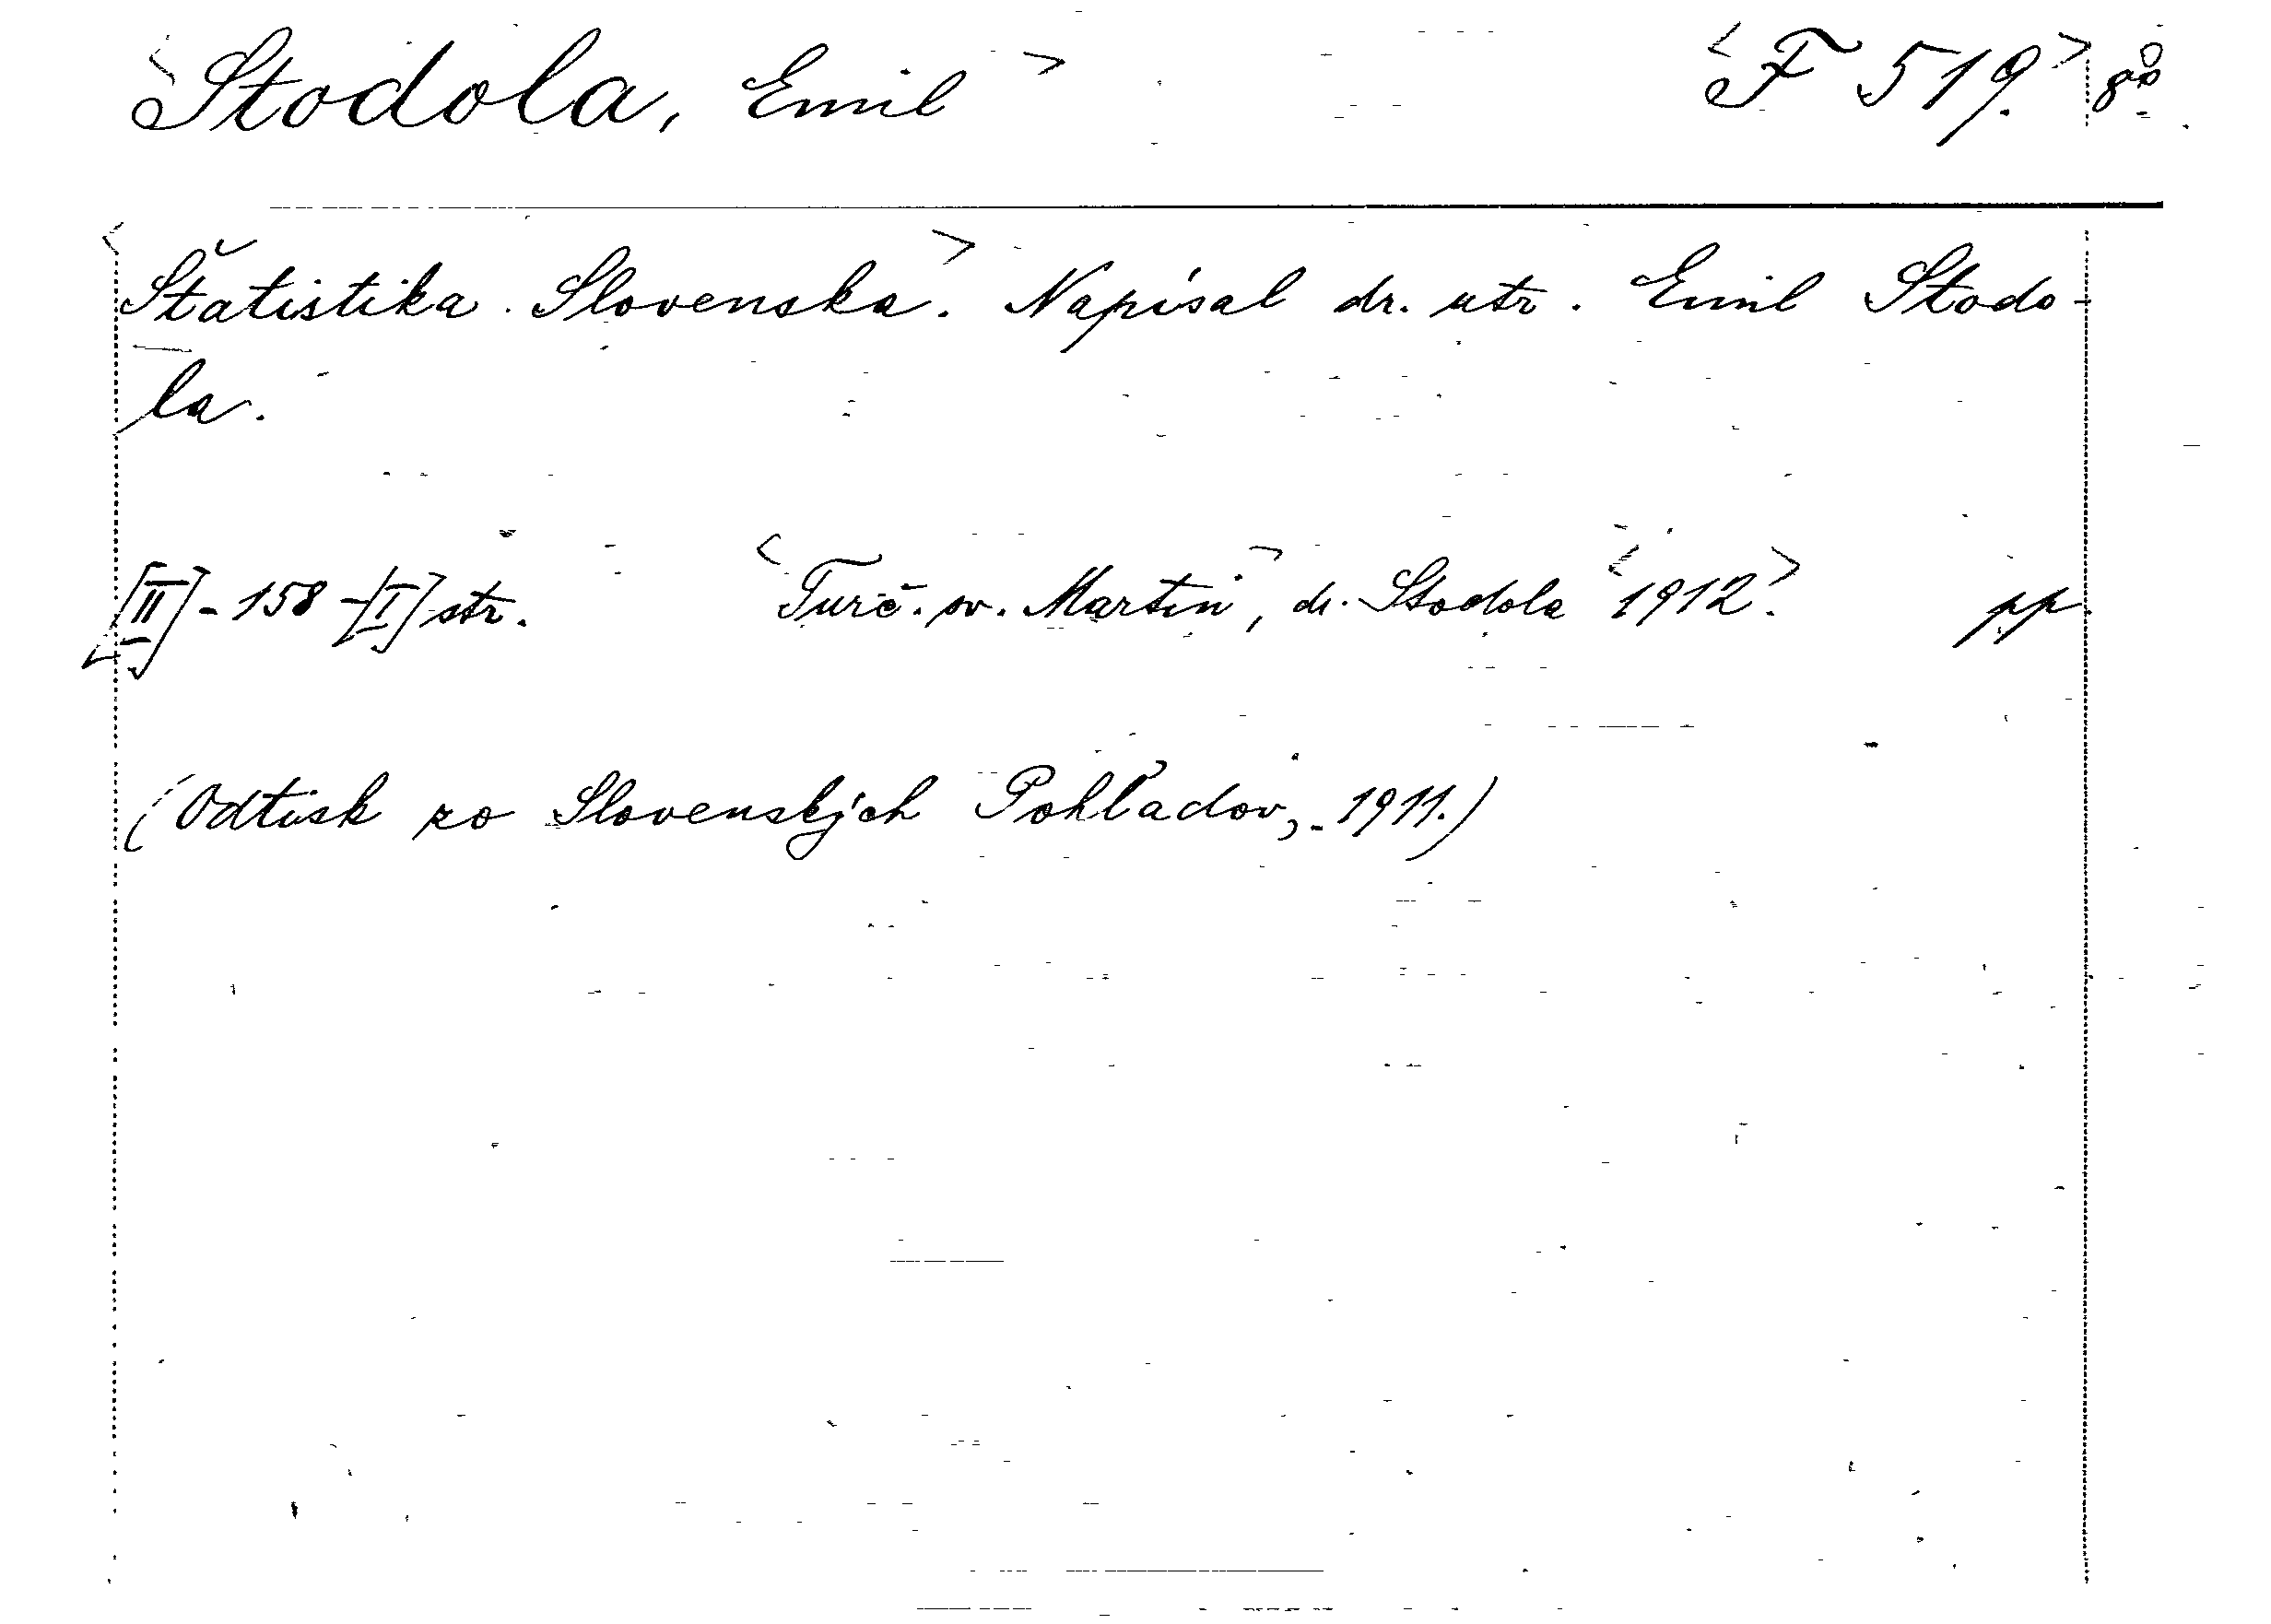 <Stodola, Emil> <F 519.> 8°
<Štatistika Slovenska>. Napísal dr. utr. Emil Stodo-
la.
[II]-158-[I] str. <Turč. sv. Martin>, dr. Stodola <1912>. pp.
(Odtisk zo Slovenských Pohľadov, 1911.)